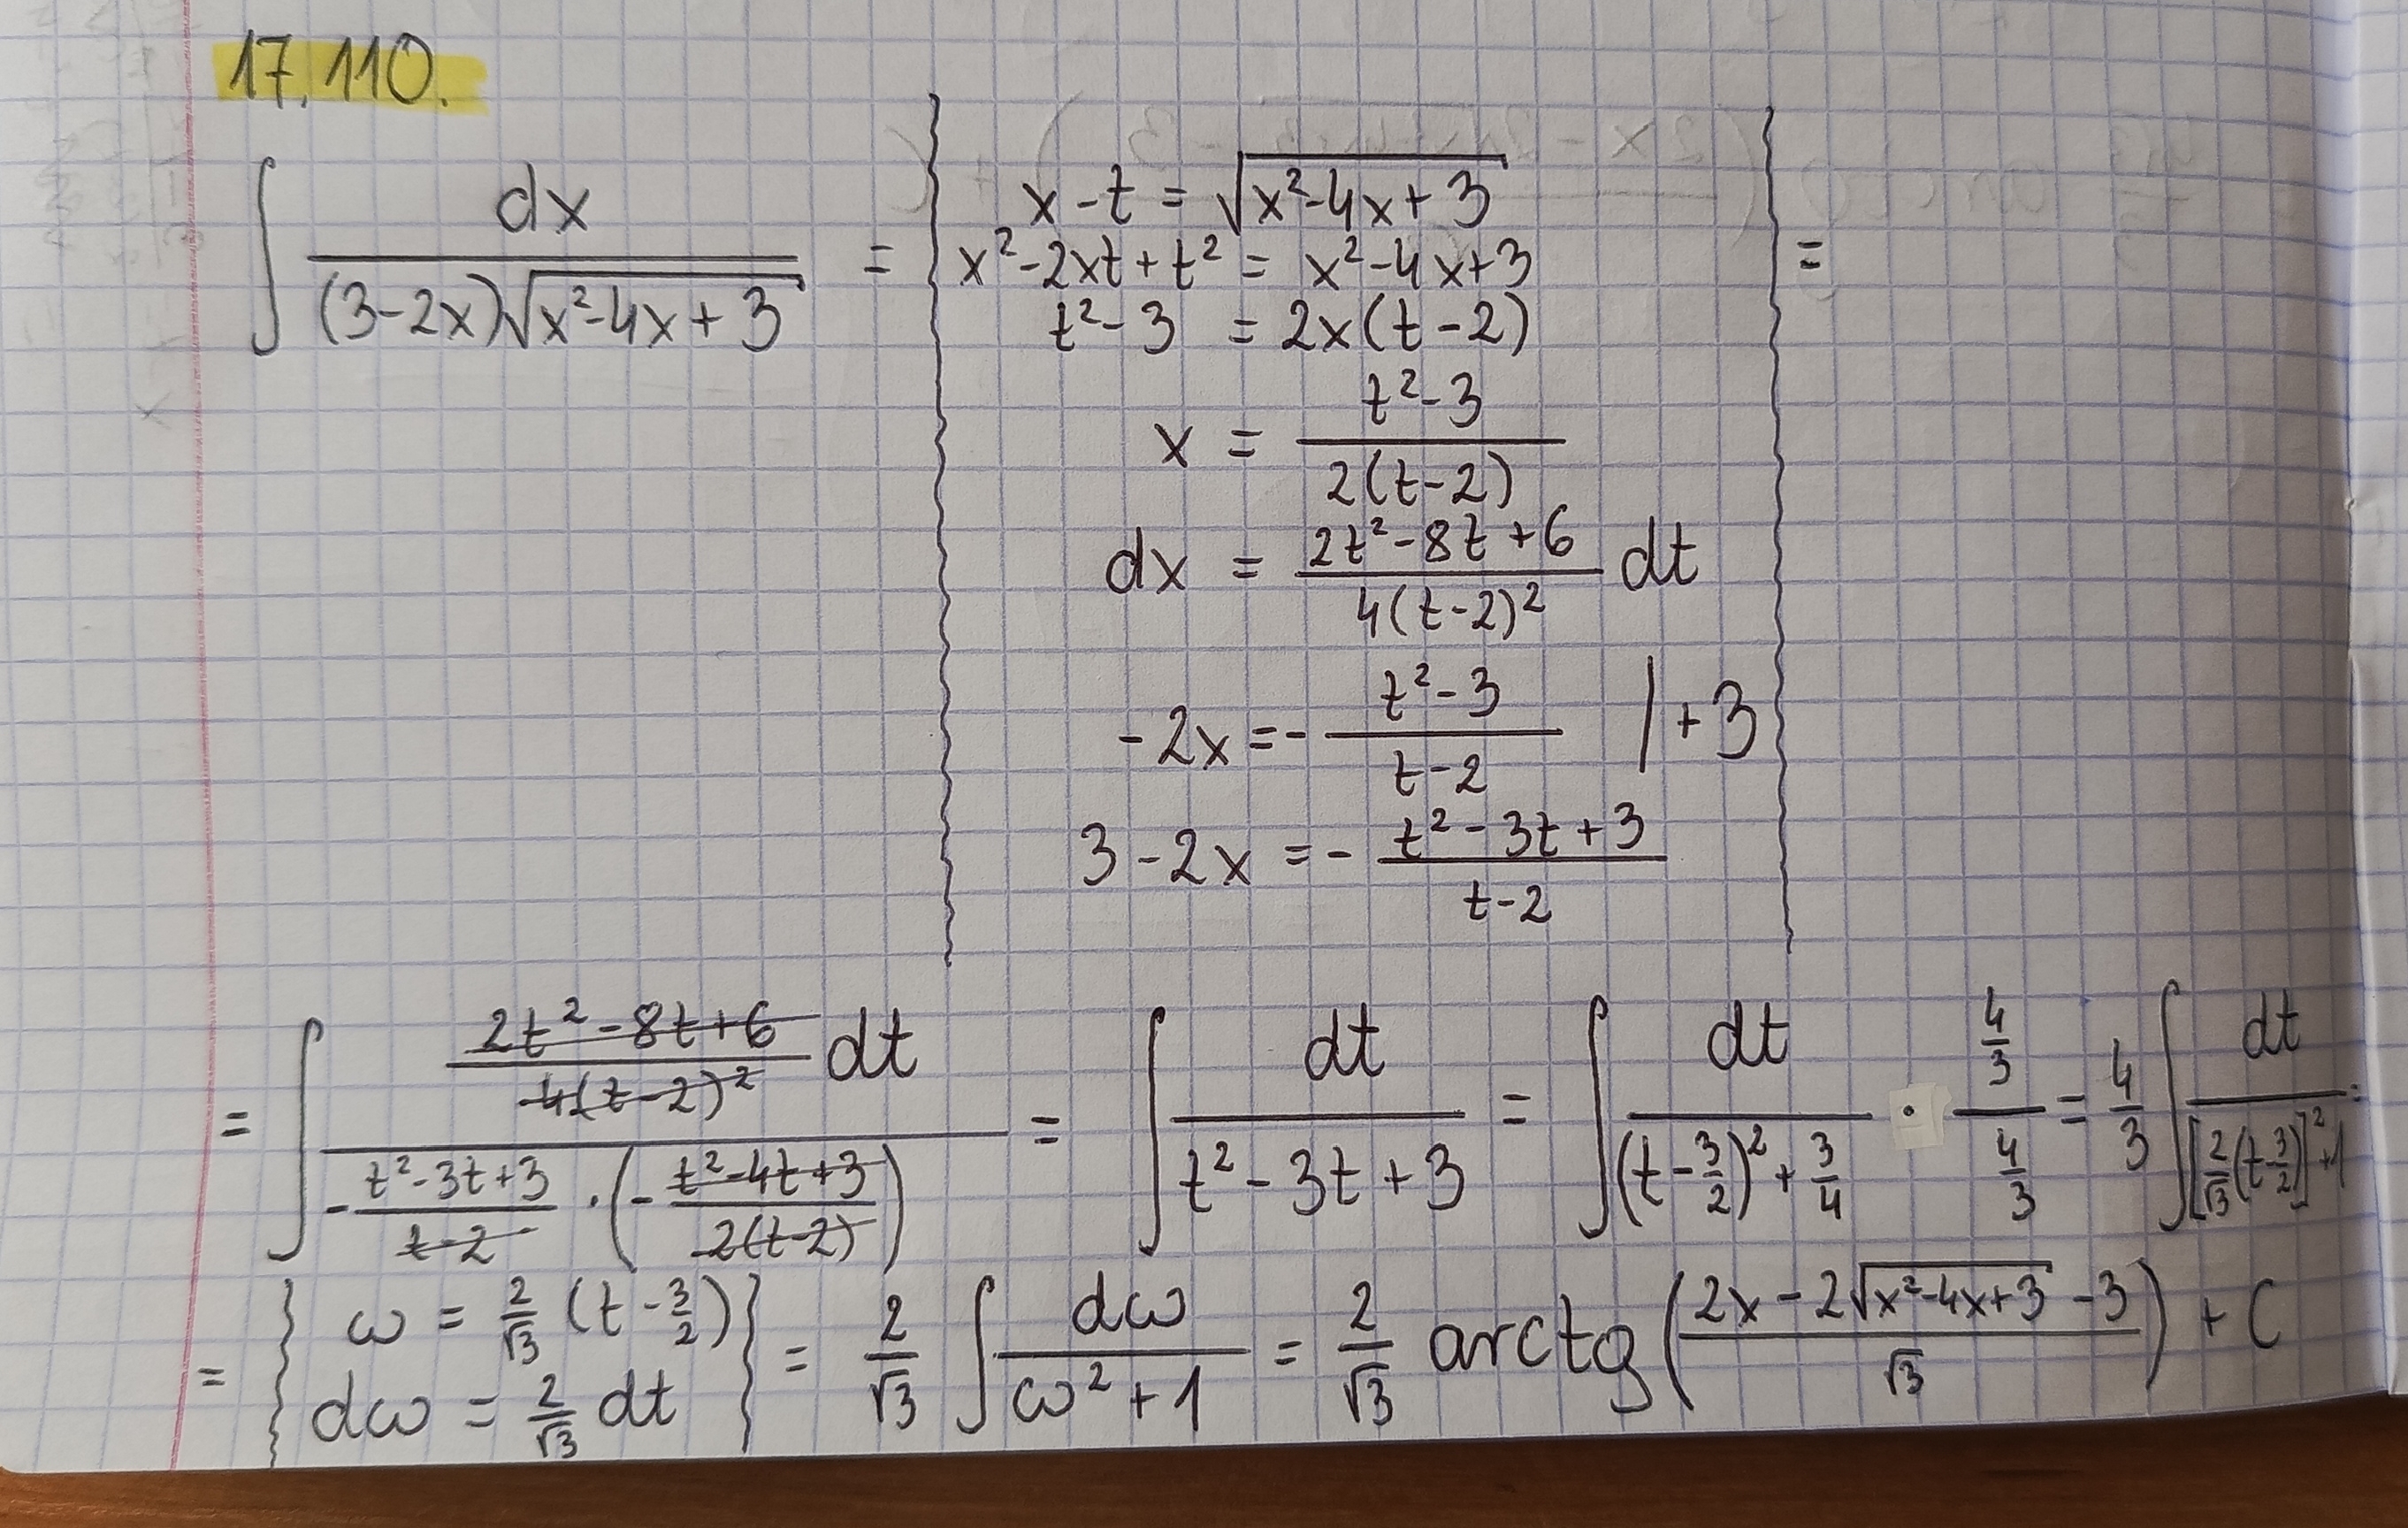 17.110.
∫ dx / ((3-2x)√(x²-4x+3)) = { x - t = √(x²-4x+3) } =
x² - 2xt + t² = x² - 4x + 3
t² - 3 = 2x(t - 2)
x = (t² - 3) / (2(t-2))
dx = (2t² - 8t + 6) / (4(t-2)²) dt
-2x = - (t² - 3) / (t-2) | +3
3 - 2x = - (t² - 3t + 3) / (t-2)
= ∫ ((2t² - 8t + 6) / (4(t-2)²) dt) / (- (t² - 3t + 3) / (t-2) · (- (t² - 4t + 3) / (2(t-2)))) = ∫ dt / (t² - 3t + 3) = ∫ dt / ((t - 3/2)² + 3/4) · (4/3) / (4/3) = 4/3 ∫ dt / ([2/√3 (t - 3/2)]² + 1) =
= { ω = 2/√3 (t - 3/2) } = 2/√3 ∫ dω / (ω² + 1) = 2/√3 arctg((2x - 2√(x²-4x+3) - 3) / √3) + C
dω = 2/√3 dt